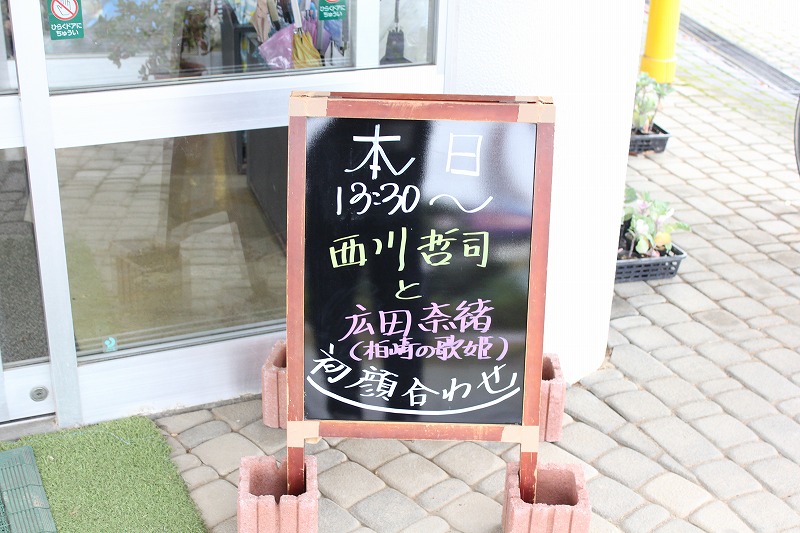 ひらくドアに
ちゅうい
ひらくドアに
ちゅうい
本日
13:30〜
西川哲司
と
広田奈緒
(柏崎の歌姫)
初顔合わせ